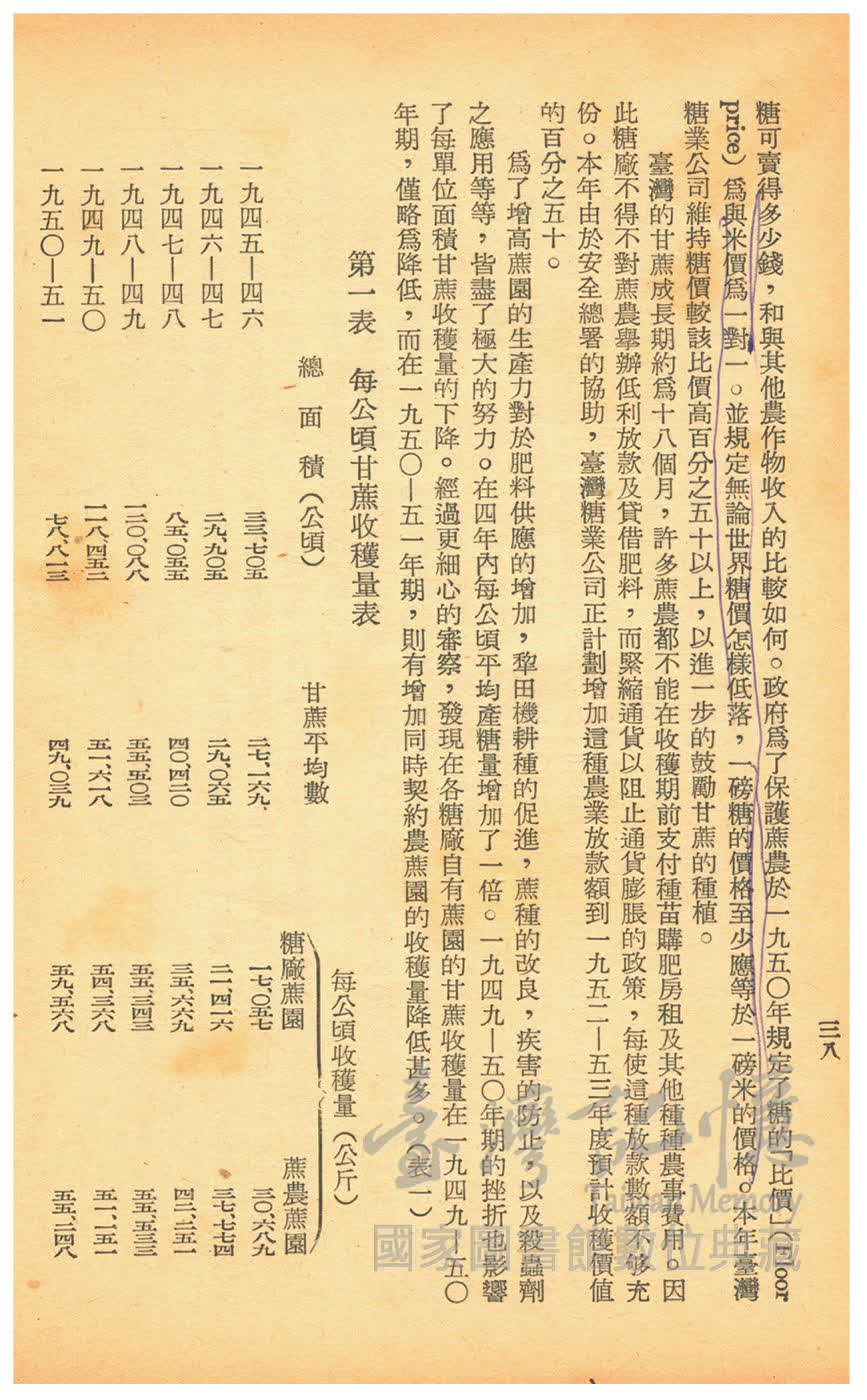 三八
糖可賣得多少錢，和與其他農作物收入的比較如何。政府爲了保護蔗農於一九五〇年規定了糖的「比價」(Floor
price) 爲與米價爲一對一。並規定無論世界糖價怎樣低落，一磅糖的價格至少應等於一磅米的價格。本年臺灣
糖業公司維持糖價較該比價高百分之五十以上，以進一步的鼓勵甘蔗的種植。
臺灣的甘蔗成長期約爲十八個月，許多蔗農都不能在收穫期前支付種苗購肥房租及其他種種農事費用。因
此糖廠不得不對蔗農舉辦低利放款及貸借肥料，而緊縮通貨以阻止通貨膨脹的政策，每使這種放款數額不够充
份。本年由於安全總署的協助，臺灣糖業公司正計劃增加這種農業放款額到一九五二—五三年度預計收穫價值
的百分之五十。
爲了增高蔗園的生產力對於肥料供應的增加，犂田機耕種的促進，蔗種的改良，疾害的防止，以及殺蟲劑
之應用等等，皆盡了極大的努力。在四年內每公頃平均產糖量增加了一倍。一九四九—五〇年期的挫折也影響
了每單位面積甘蔗收穫量的下降。經過更細心的審察，發現在各糖廠自有蔗園的甘蔗收穫量在一九四九—五〇
年期，僅略爲降低，而在一九五〇—五一年期，則有增加同時契約農蔗園的收穫量降低甚多。（表一）
第一表　每公頃甘蔗收穫量表
每公頃收穫量（公斤）
總面積（公頃）　甘蔗平均數　糖廠蔗園　蔗農蔗園
一九四五—四六　三三、七〇五　二七、一六九　一七、〇五七　三〇、六八九
一九四六—四七　二九、九〇五　二九、〇六五　二一、四一六　三七、七七四
一九四七—四八　八五、〇五五　四〇、四二〇　三五、六六九　四二、二五一
一九四八—四九　一二〇、〇八八　五五、五〇三　五五、三四三　五五、五三三
一九四九—五〇　一一八、四五二　五一、六一八　五四、三六八　五一、一五一
一九五〇—五一　七八、八一三　四九、〇三九　五九、五六八　五五、二四八
臺灣記憶
Taiwan Memory
國家圖書館數位典藏